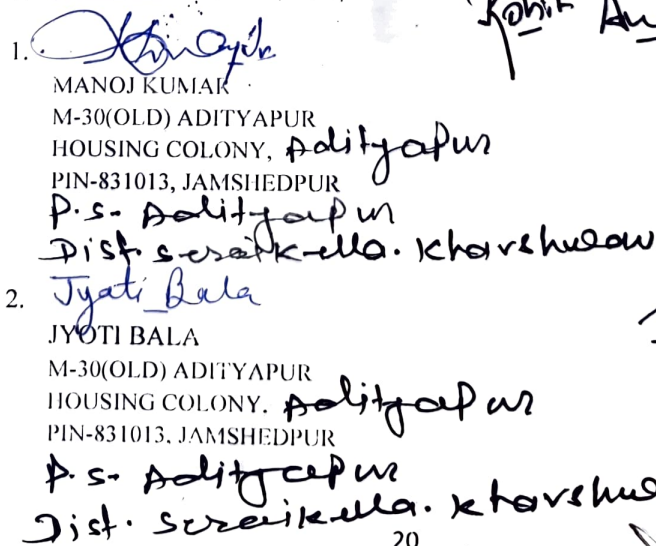 Rohit
1.
MANOJ KUMAR
M-30(OLD) ADITYAPUR
HOUSING COLONY, Adityapur
PIN-831013, JAMSHEDPUR
P.S- Adityapur
Dist. Seraikella. Kharshwaw
2. Jyoti Bala
JYOTI BALA
M-30(OLD) ADITYAPUR
HOUSING COLONY. Adityapur
PIN-831013, JAMSHEDPUR
P.S- Adityapur
Dist. Seraikella.
20